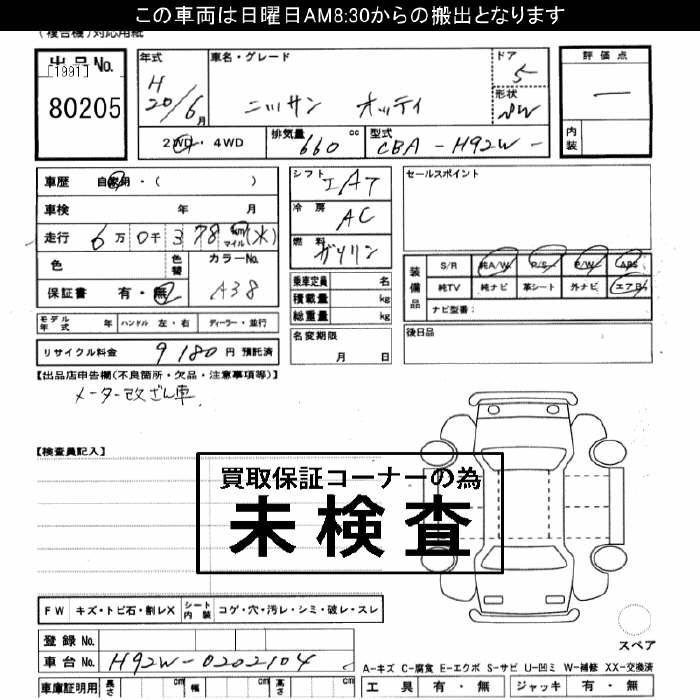 この車両は日曜日AM8:30からの搬出となります
(複合機)対応用紙
出品No.
[1991]
80205
年式
H
20/6月
車名・グレード
ニッサン オッティ
ドア
5
形状
評価点
―
内装
2WD・4WD
排気量
660cc
型式
CBA-H92W-
車歴 自家用・( )
車検 年 月
走行 6万0千378 km マイル(*)
色
色替
カラーNo.
A38
保証書 有・無
モデル年式 年 ハンドル 左・右 ディーラー・並行
リサイクル料金 9180円 預託済
シフト
IAT
冷房
AC
燃料
ガソリン
乗車定員 名
積載量 kg
総重量 kg
名変期限
月 日
セールスポイント
装備品
S/R 純A/W P/S P/W ABS
純TV 純ナビ 革シート 外ナビ エアB
ナビ型番:
後日品
【出品店申告欄(不良箇所・欠品・注意事項等)】
メーター改ざん車
【検査員記入】
買取保証コーナーの為
未検査
FW キズ・トビ石・割レX シート内装 コゲ・穴・汚レ・シミ・破レ・スレ
登録No.
車台No. H92W-0202104
車庫証明用 長さ cm 幅 cm 高さ cm
スペア
A-キズ C-腐食 E-エクボ S-サビ U-凹ミ W-補修 XX-交換済
工具 有・無 ジャッキ 有・無